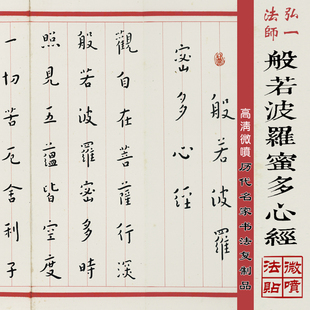 弘一
法師
般若波羅蜜多心經
高清微噴 历代名家书法复制品
微噴
法貼
般若波羅
蜜多心經
觀自在菩薩行深
般若波羅蜜多時
照見五蘊皆空度
一切苦厄舍利子